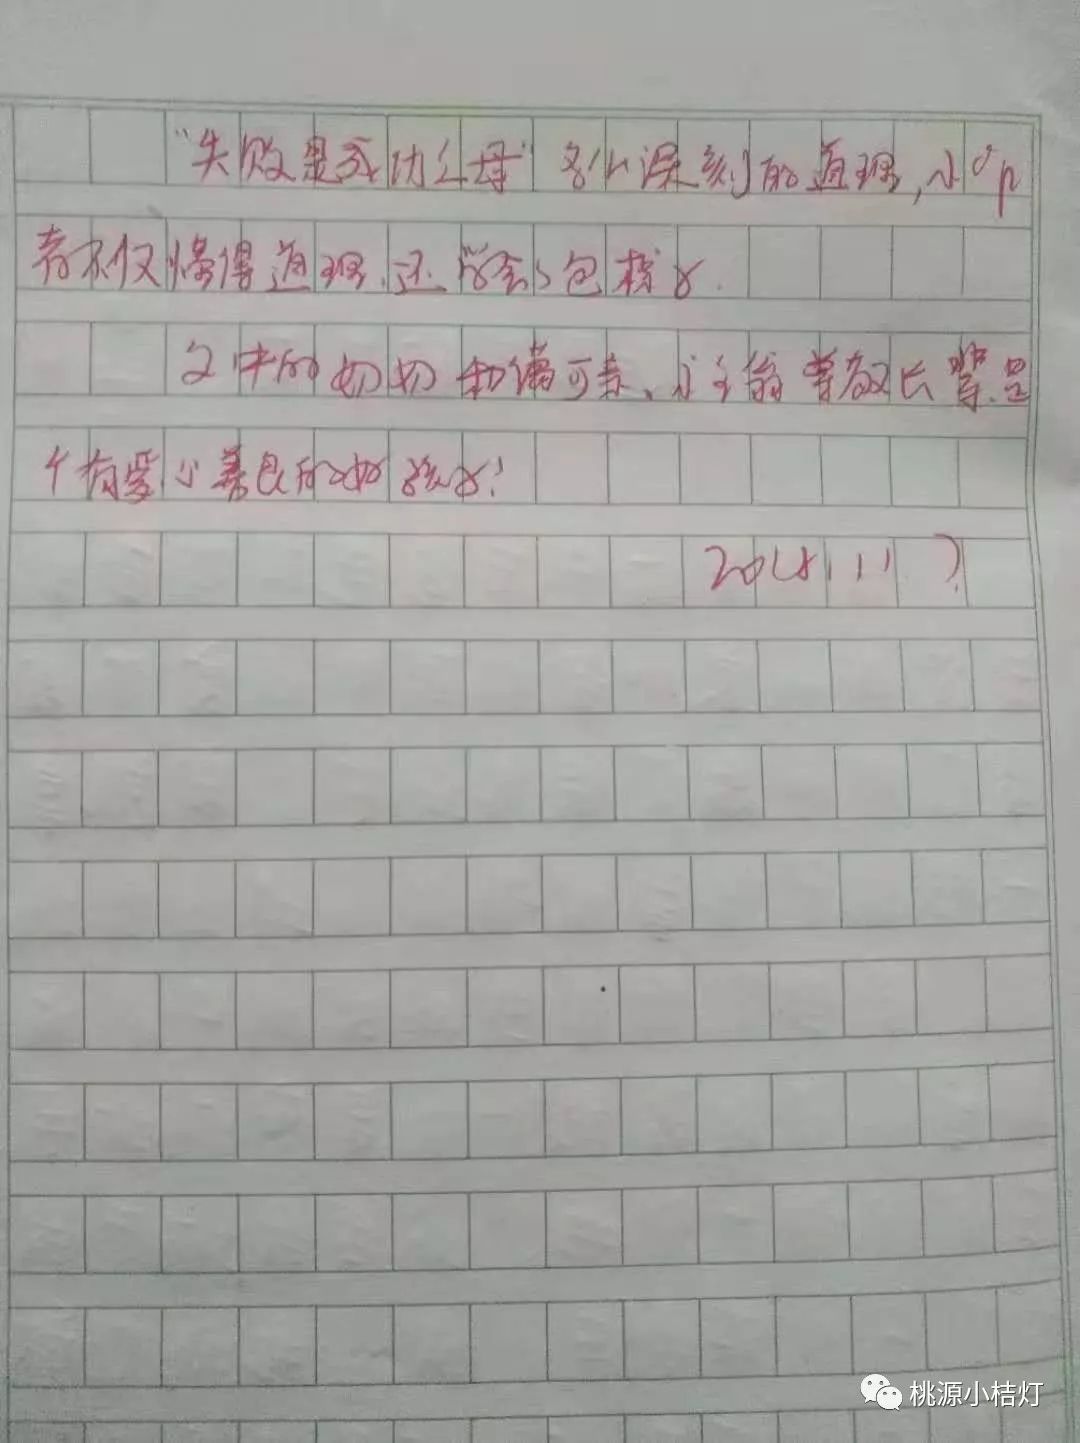 "失败是成功之母"多么深刻的道理,小作
者不仅懂得道理,还学会了包粽子.
文中的奶奶和蔼可亲、小主翁尊敬长辈.是
个有爱心善良的好孩子!
2018.11.7
桃源小桔灯